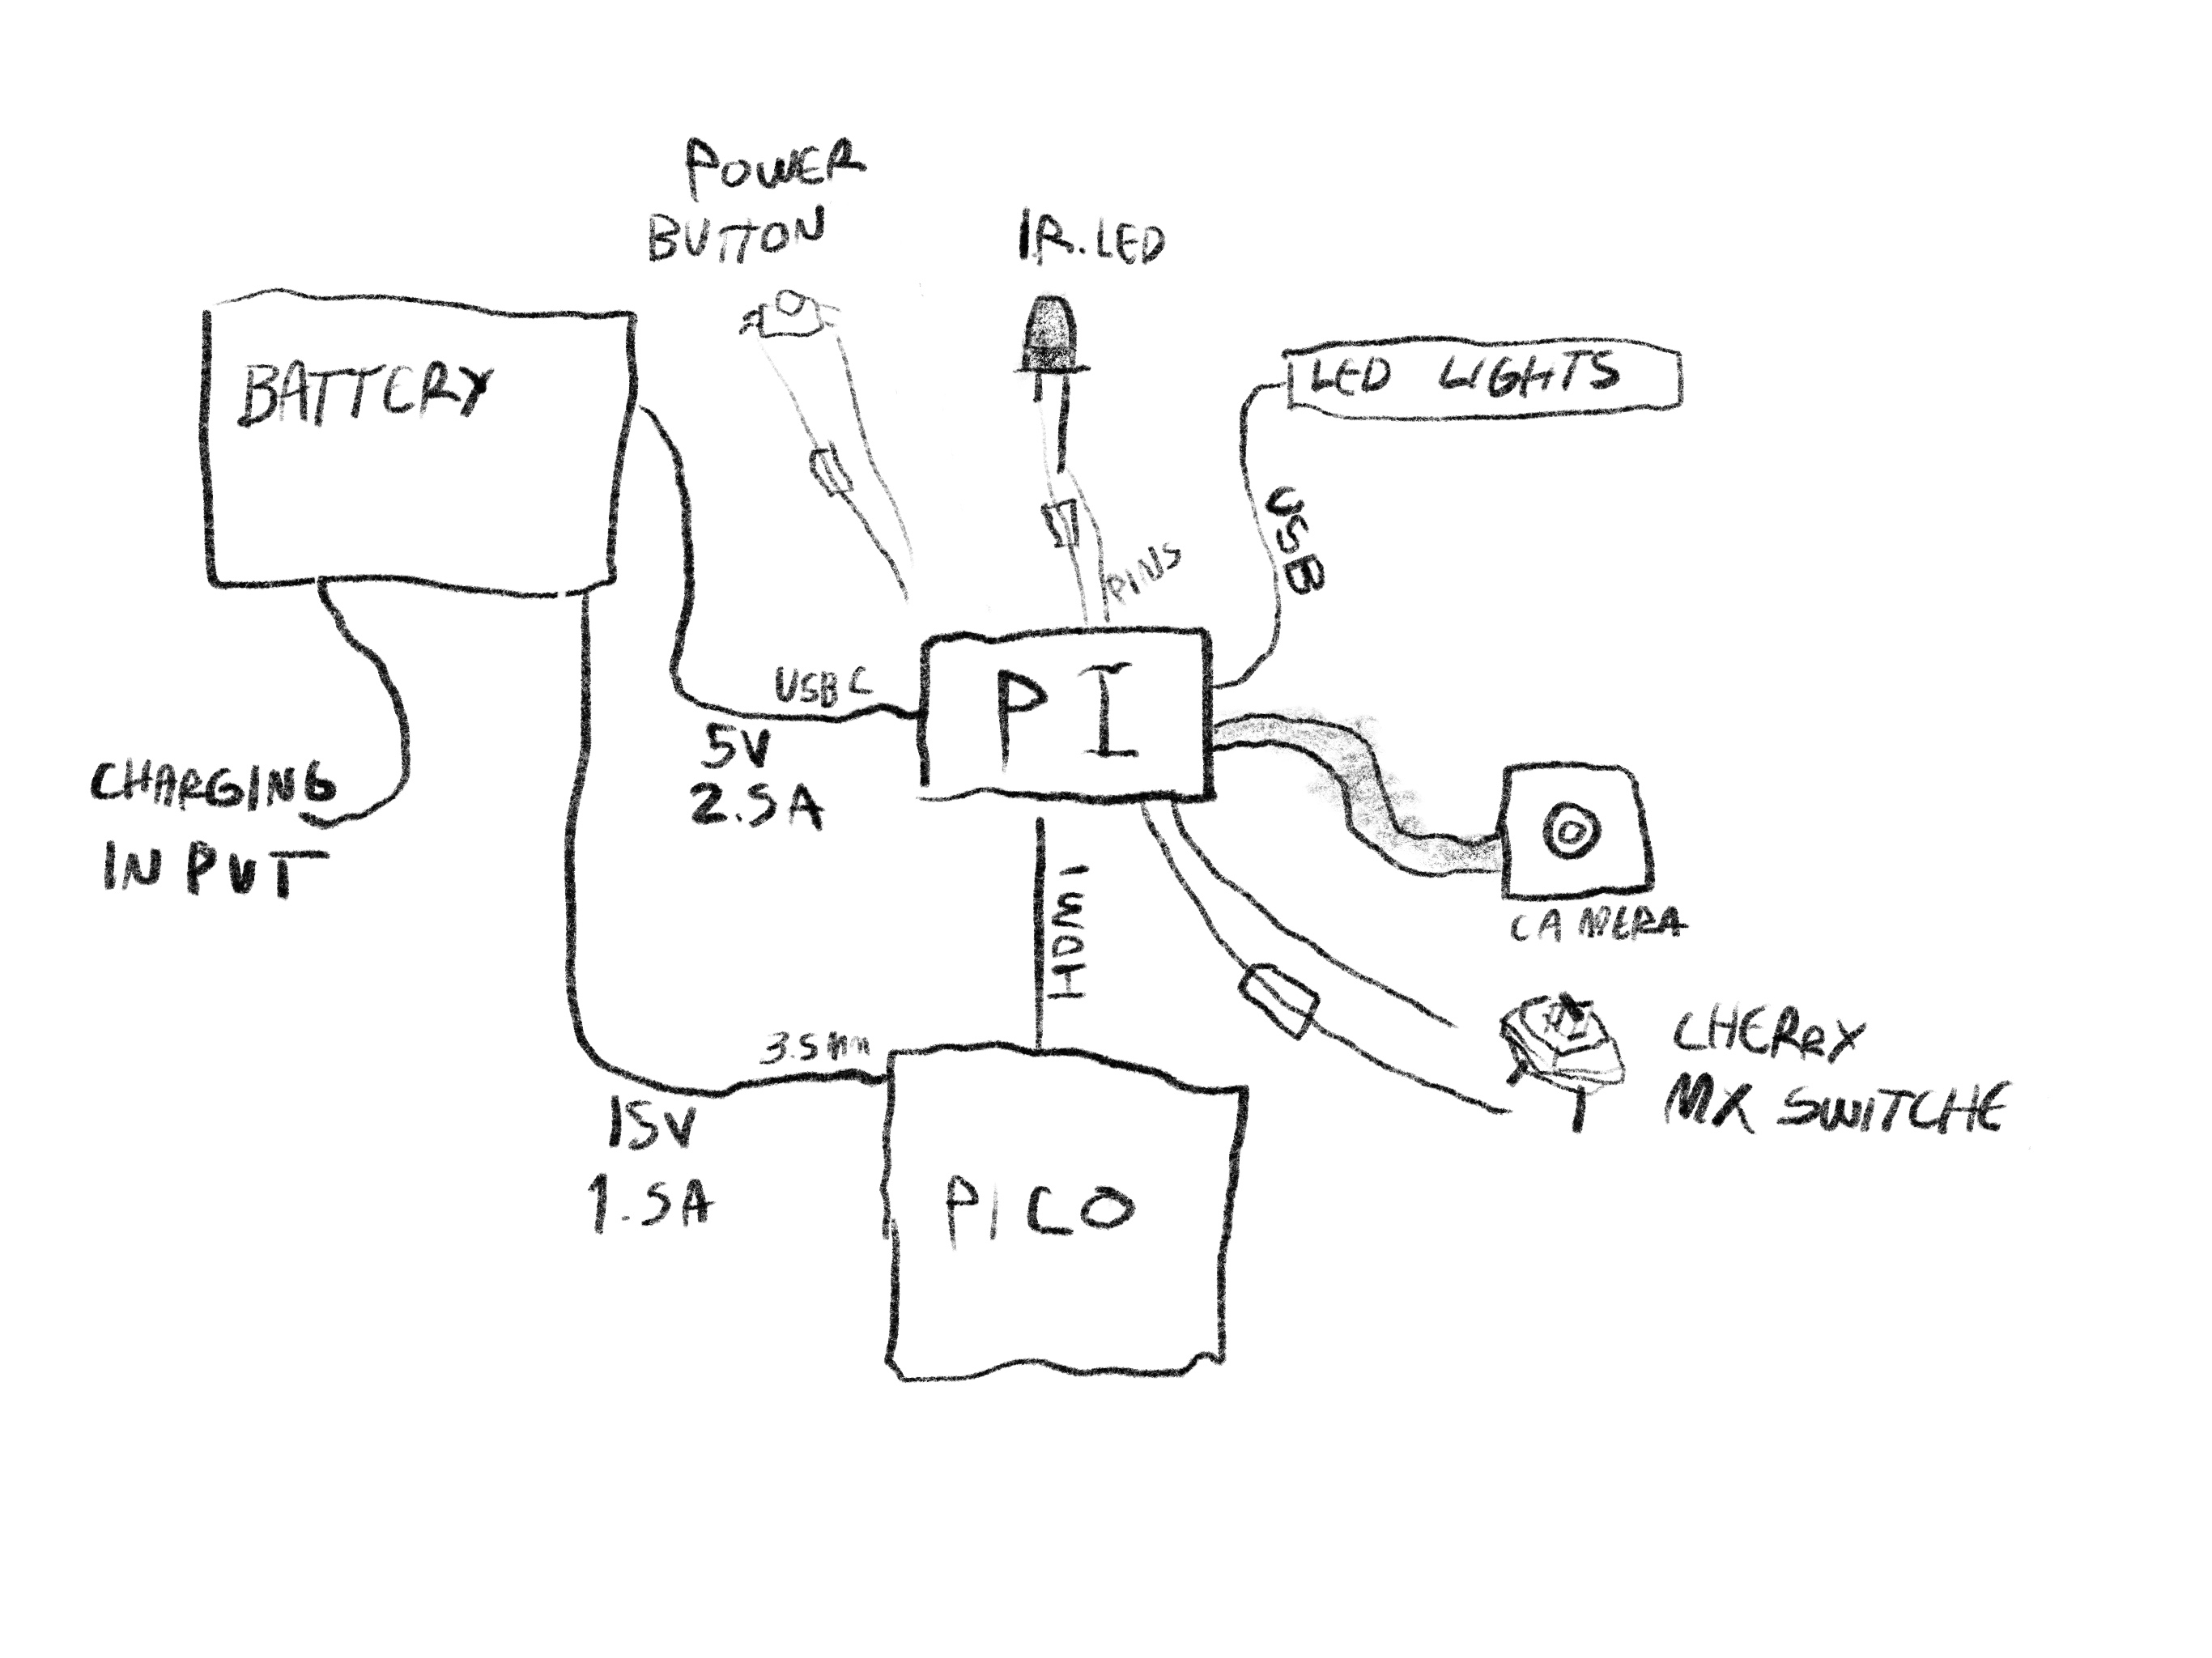 POWER
BUTTON
I.R. LED
BATTERY
LED LIGHTS
USB
PINS
USB C
PI
5V
2.5A
CHARGING
INPUT
HDMI
CAMERA
CHERRY
MX SWITCHE
3.5mm
15V
1.5A
PICO